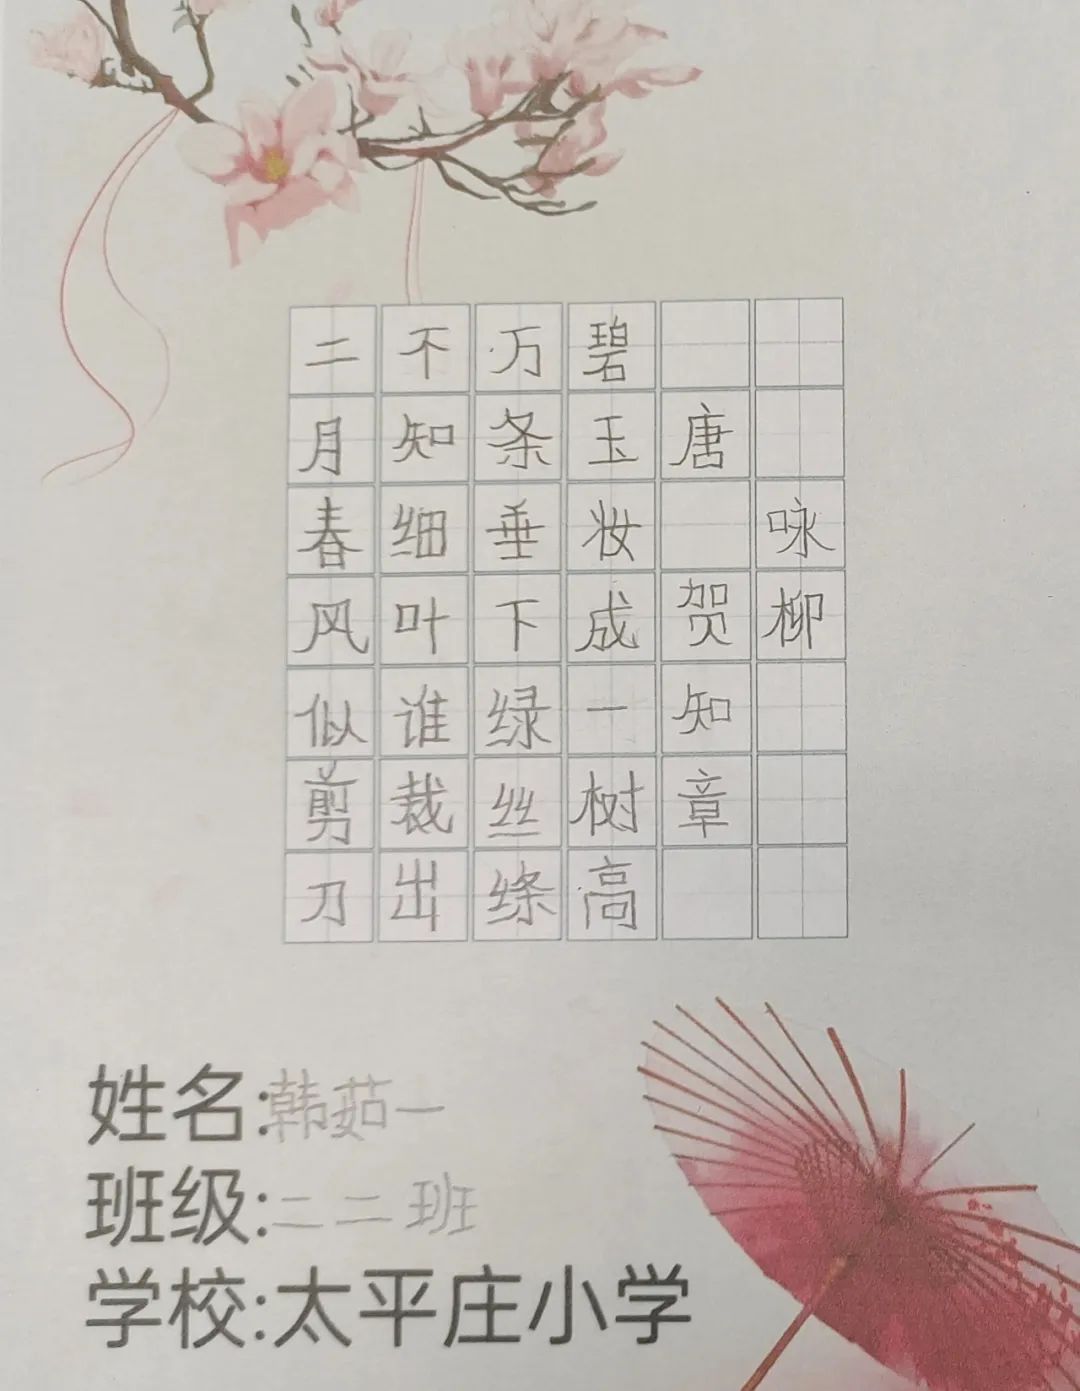 咏柳
唐 贺知章
碧玉妆成一树高
万条垂下绿丝绦
不知细叶谁裁出
二月春风似剪刀
姓名:韩茹一
班级:二二班
学校:太平庄小学